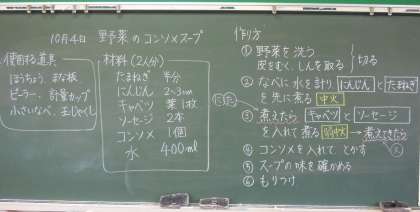 10月4日 野菜のコンソメスープ
使用する道具
ほうちょう、まな板
ピーラー、計量カップ
小さいなべ、玉じゃくし
材料(2人分)
たまねぎ 半分
にんじん 2~3cm
キャベツ 葉1枚
ソーセージ 2本
コンソメ 1個
水 400ml
作り方
① 野菜を洗う
皮をむく、しんを取る
切る
② なべに水を計り にんじん と たまねぎ
を先に煮る 中火
③ 煮えたら キャベツ と ソーセージ
を入れて煮る 弱中火 → 煮えてきたら
④ コンソメを入れて とかす
⑤ スープの味を確かめる
⑥ もりつけ